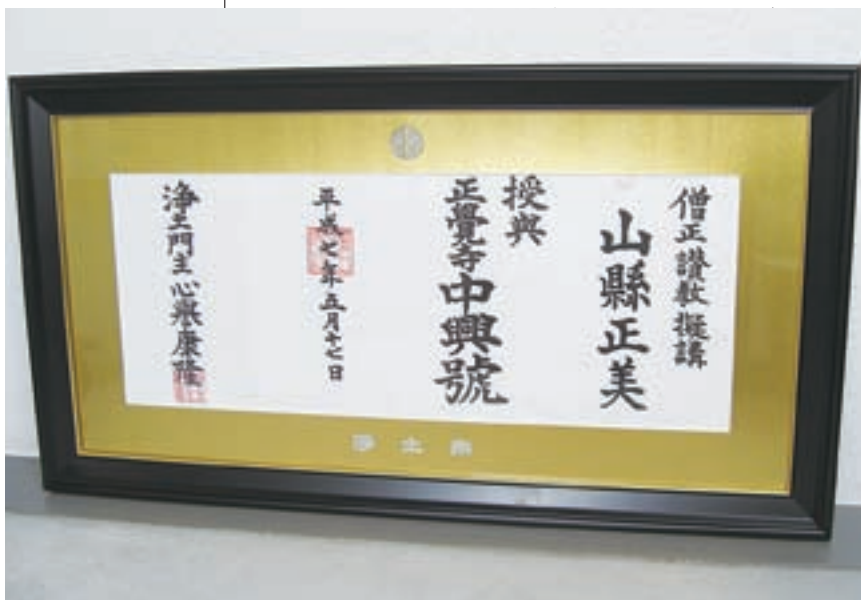 僧正讃教擬講
山縣正美
授與
正覺寺中興號
平成七年五月十七日
浄土門主心誉康隆
浄土宗